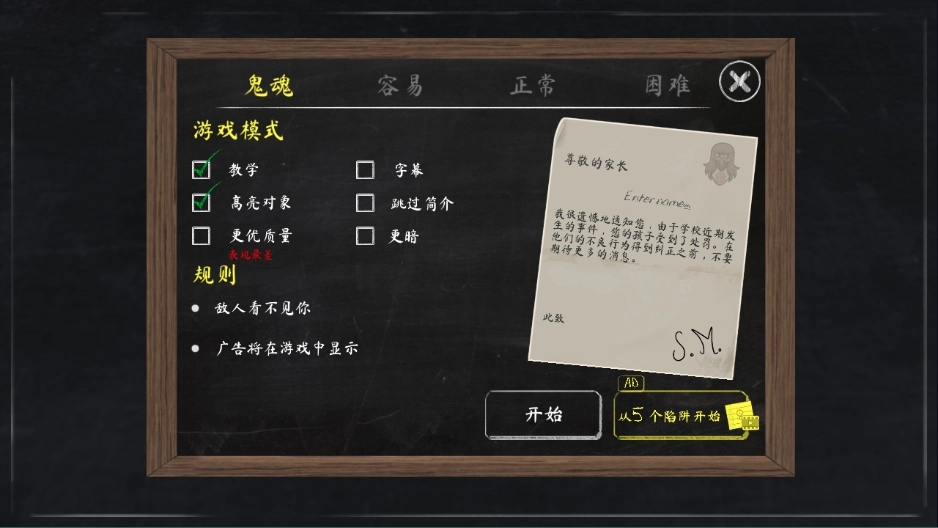 鬼魂 容易 正常 困难
游戏模式
教学 字幕
高亮对象 跳过简介
更优质量 更暗
表现最差
规则
敌人看不见你
广告将在游戏中显示
尊敬的家长
Enter name...
我很遗憾地通知您，由于学校近期发
生的事件，您的孩子受到了处罚。在
他们的不良行为得到纠正之前，不要
期待更多的消息。
此致
S.M.
开始
AD
从5个陷阱开始